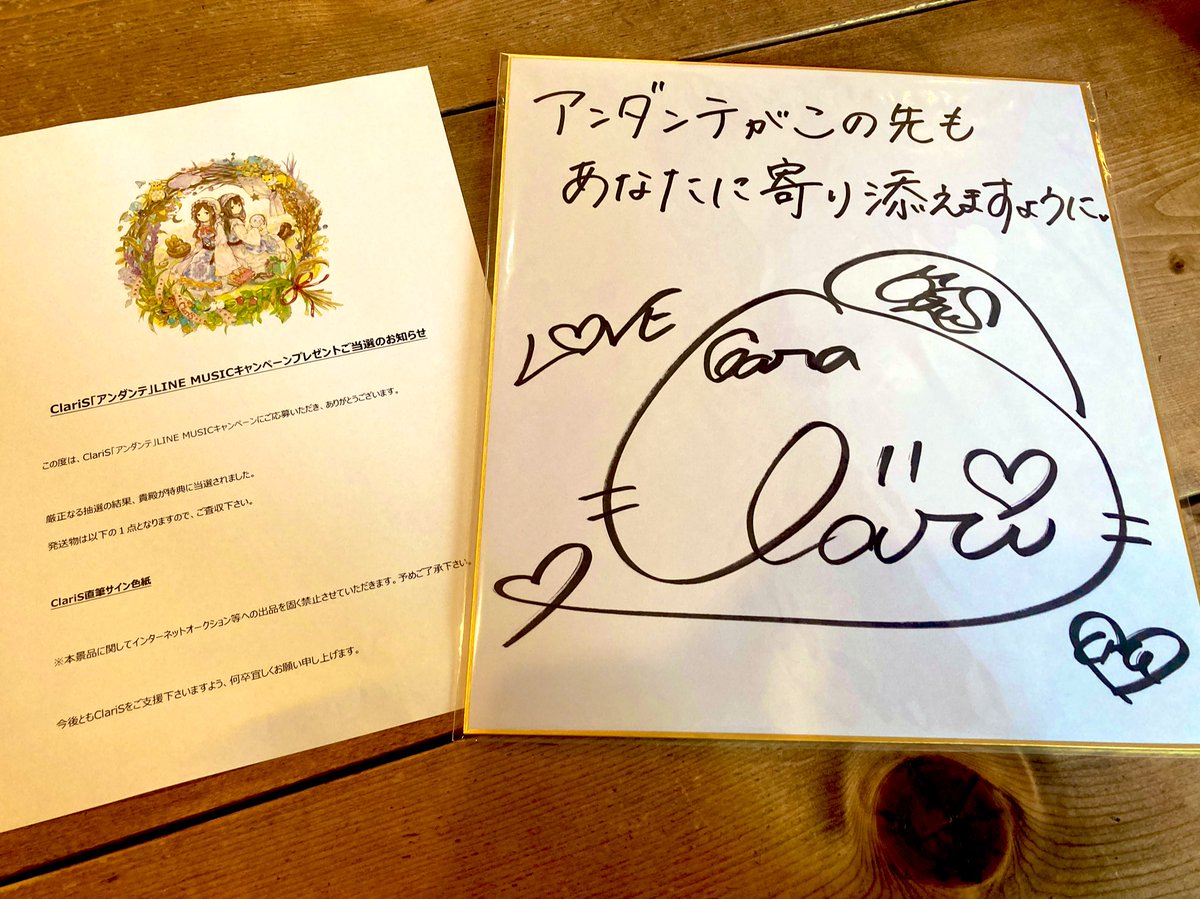 ClariS「アンダンテ」LINE MUSICキャンペーンプレゼントご当選のお知らせ
この度は、ClariS「アンダンテ」LINE MUSICキャンペーンにご応募いただき、ありがとうございます。
厳正なる抽選の結果、貴殿が特典に当選されました。
発送物は以下の1点となりますので、ご査収下さい。
ClariS直筆サイン色紙
※本景品に関してインターネットオークション等への出品を固く禁止させていただきます。予めご了承下さい。
今後ともClariSをご支援下さいますよう、何卒宜しくお願い申し上げます。
アンダンテがこの先も
あなたに寄り添えますように
LOVE
Clara
ClariS